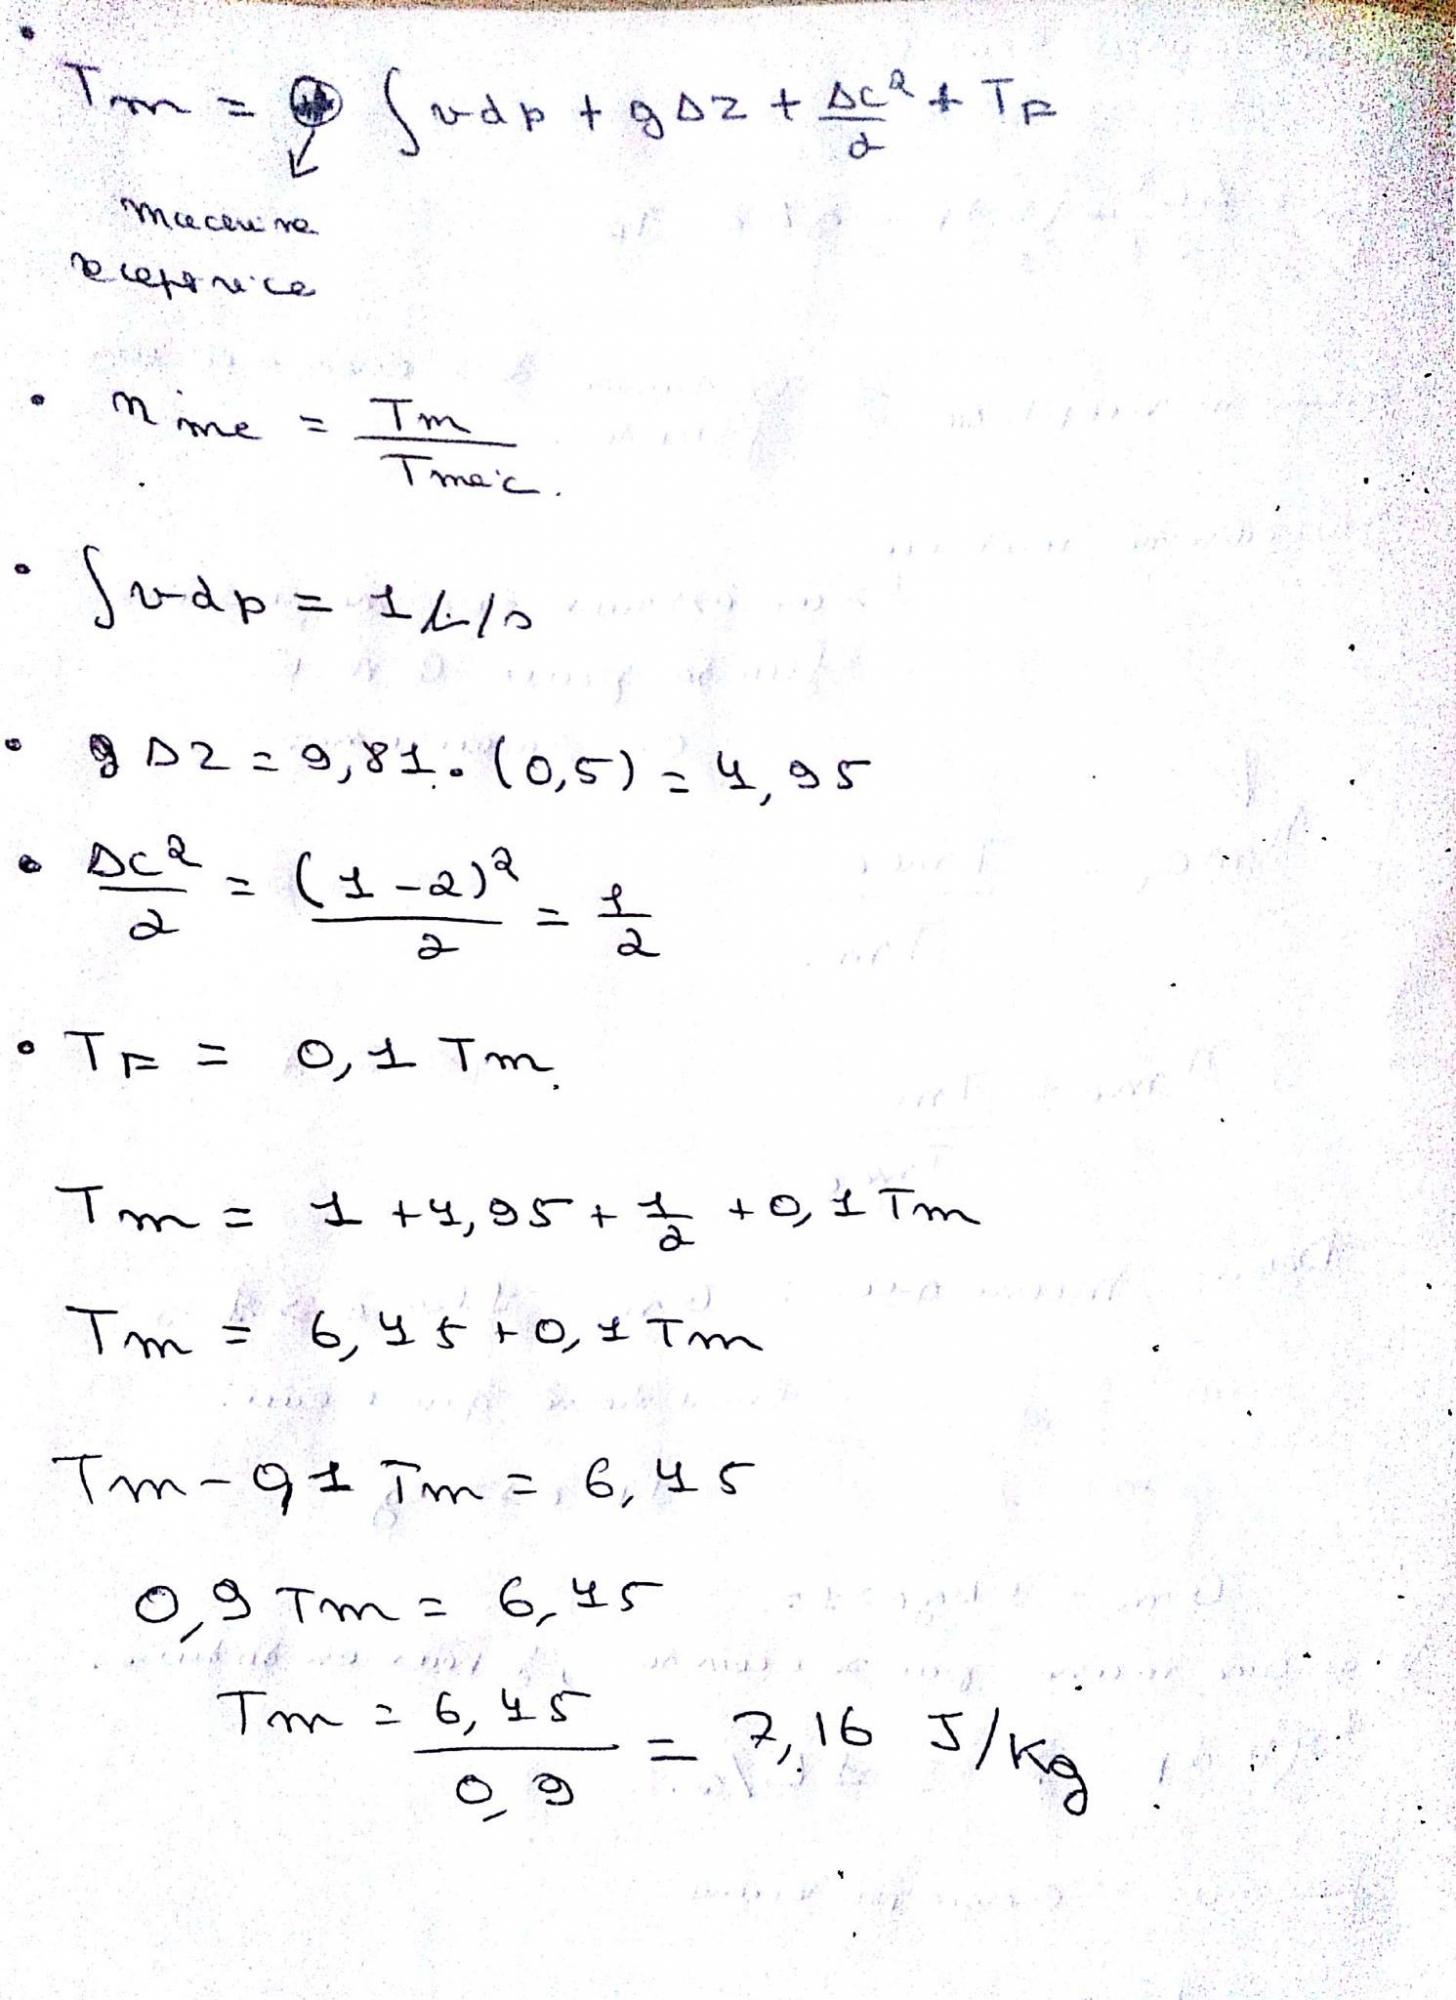 Tm = ∫ vdp + gΔz + Δc²/2 + TF
receptrice
ηme = Tm/Tmec.
∫ vdp = 1 L/s
gΔz = 9,81.(0,5) = 4,95
Δc²/2 = (1-2)²/2 = 1/2
TF = 0,1 Tm.
Tm = 1 + 4,95 + 1/2 + 0,1 Tm
Tm = 6,45 + 0,1 Tm
Tm - 0,1 Tm = 6,45
0,9 Tm = 6,45
Tm = 6,45/0,9 = 7,16 J/Kg